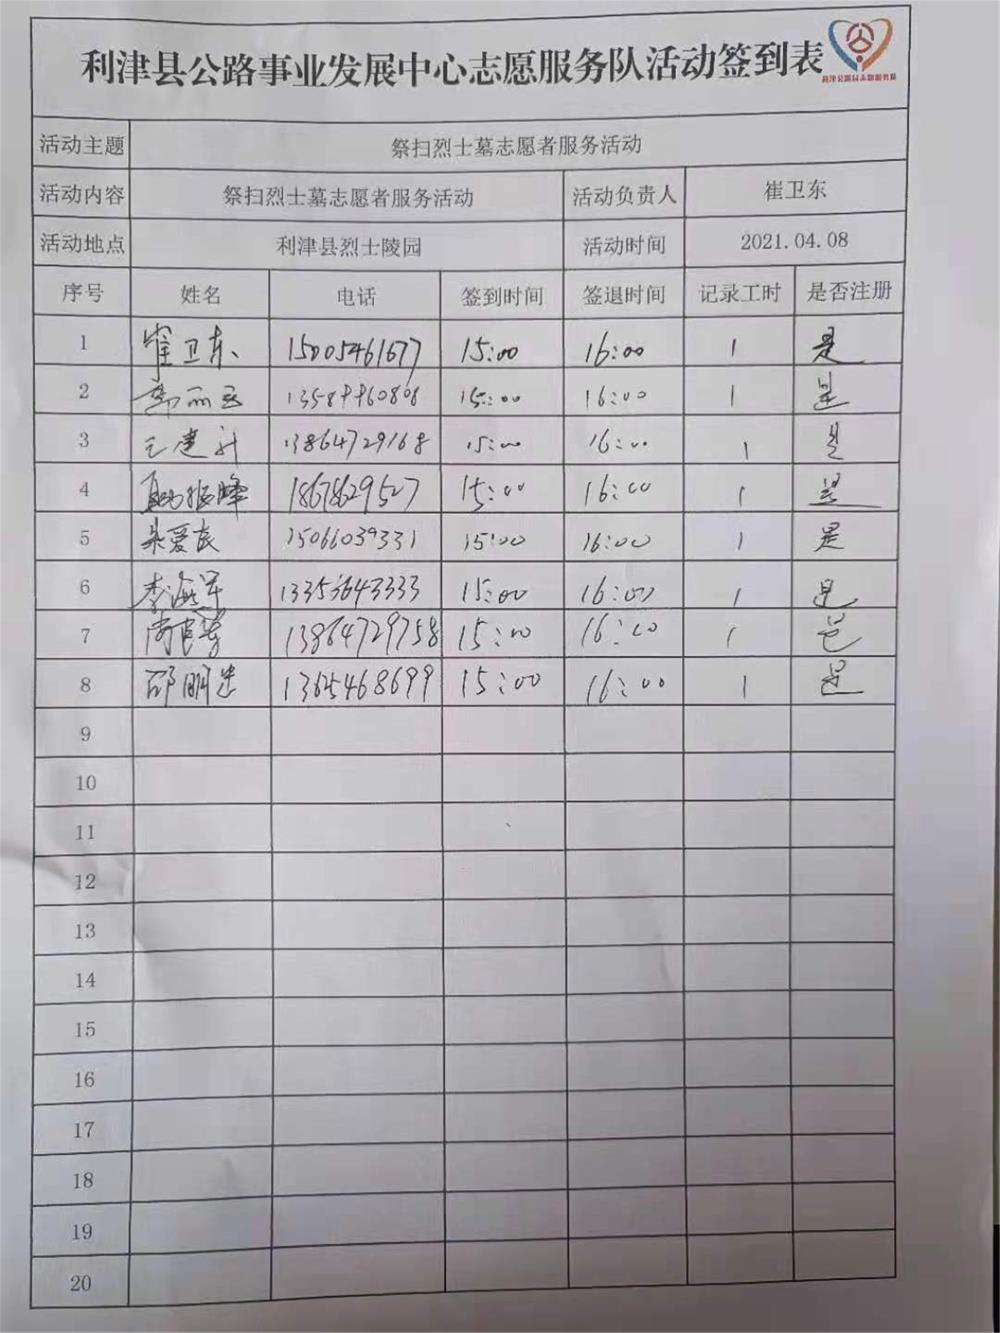 利津县公路事业发展中心志愿服务队活动签到表
活动主题 祭扫烈士墓志愿者服务活动
活动内容 祭扫烈士墓志愿者服务活动 活动负责人 崔卫东
活动地点 利津县烈士陵园 活动时间 2021.04.08
序号 姓名 电话 签到时间 签退时间 记录工时 是否注册
1 崔卫东 15005461677 15:00 16:00 1 是
2 15:00 16:00 1 是
3 13864729168 15:00 16:00 1 是
4 18678629527 15:00 16:00 1 是
5 15066039331 15:00 16:00 1 是
6 李海军 13353643333 15:00 16:00 1 是
7 13864729758 15:00 16:00 1 是
8 邵明忠 13625468699 15:00 16:00 1 是
9
10
11
12
13
14
15
16
17
18
19
20